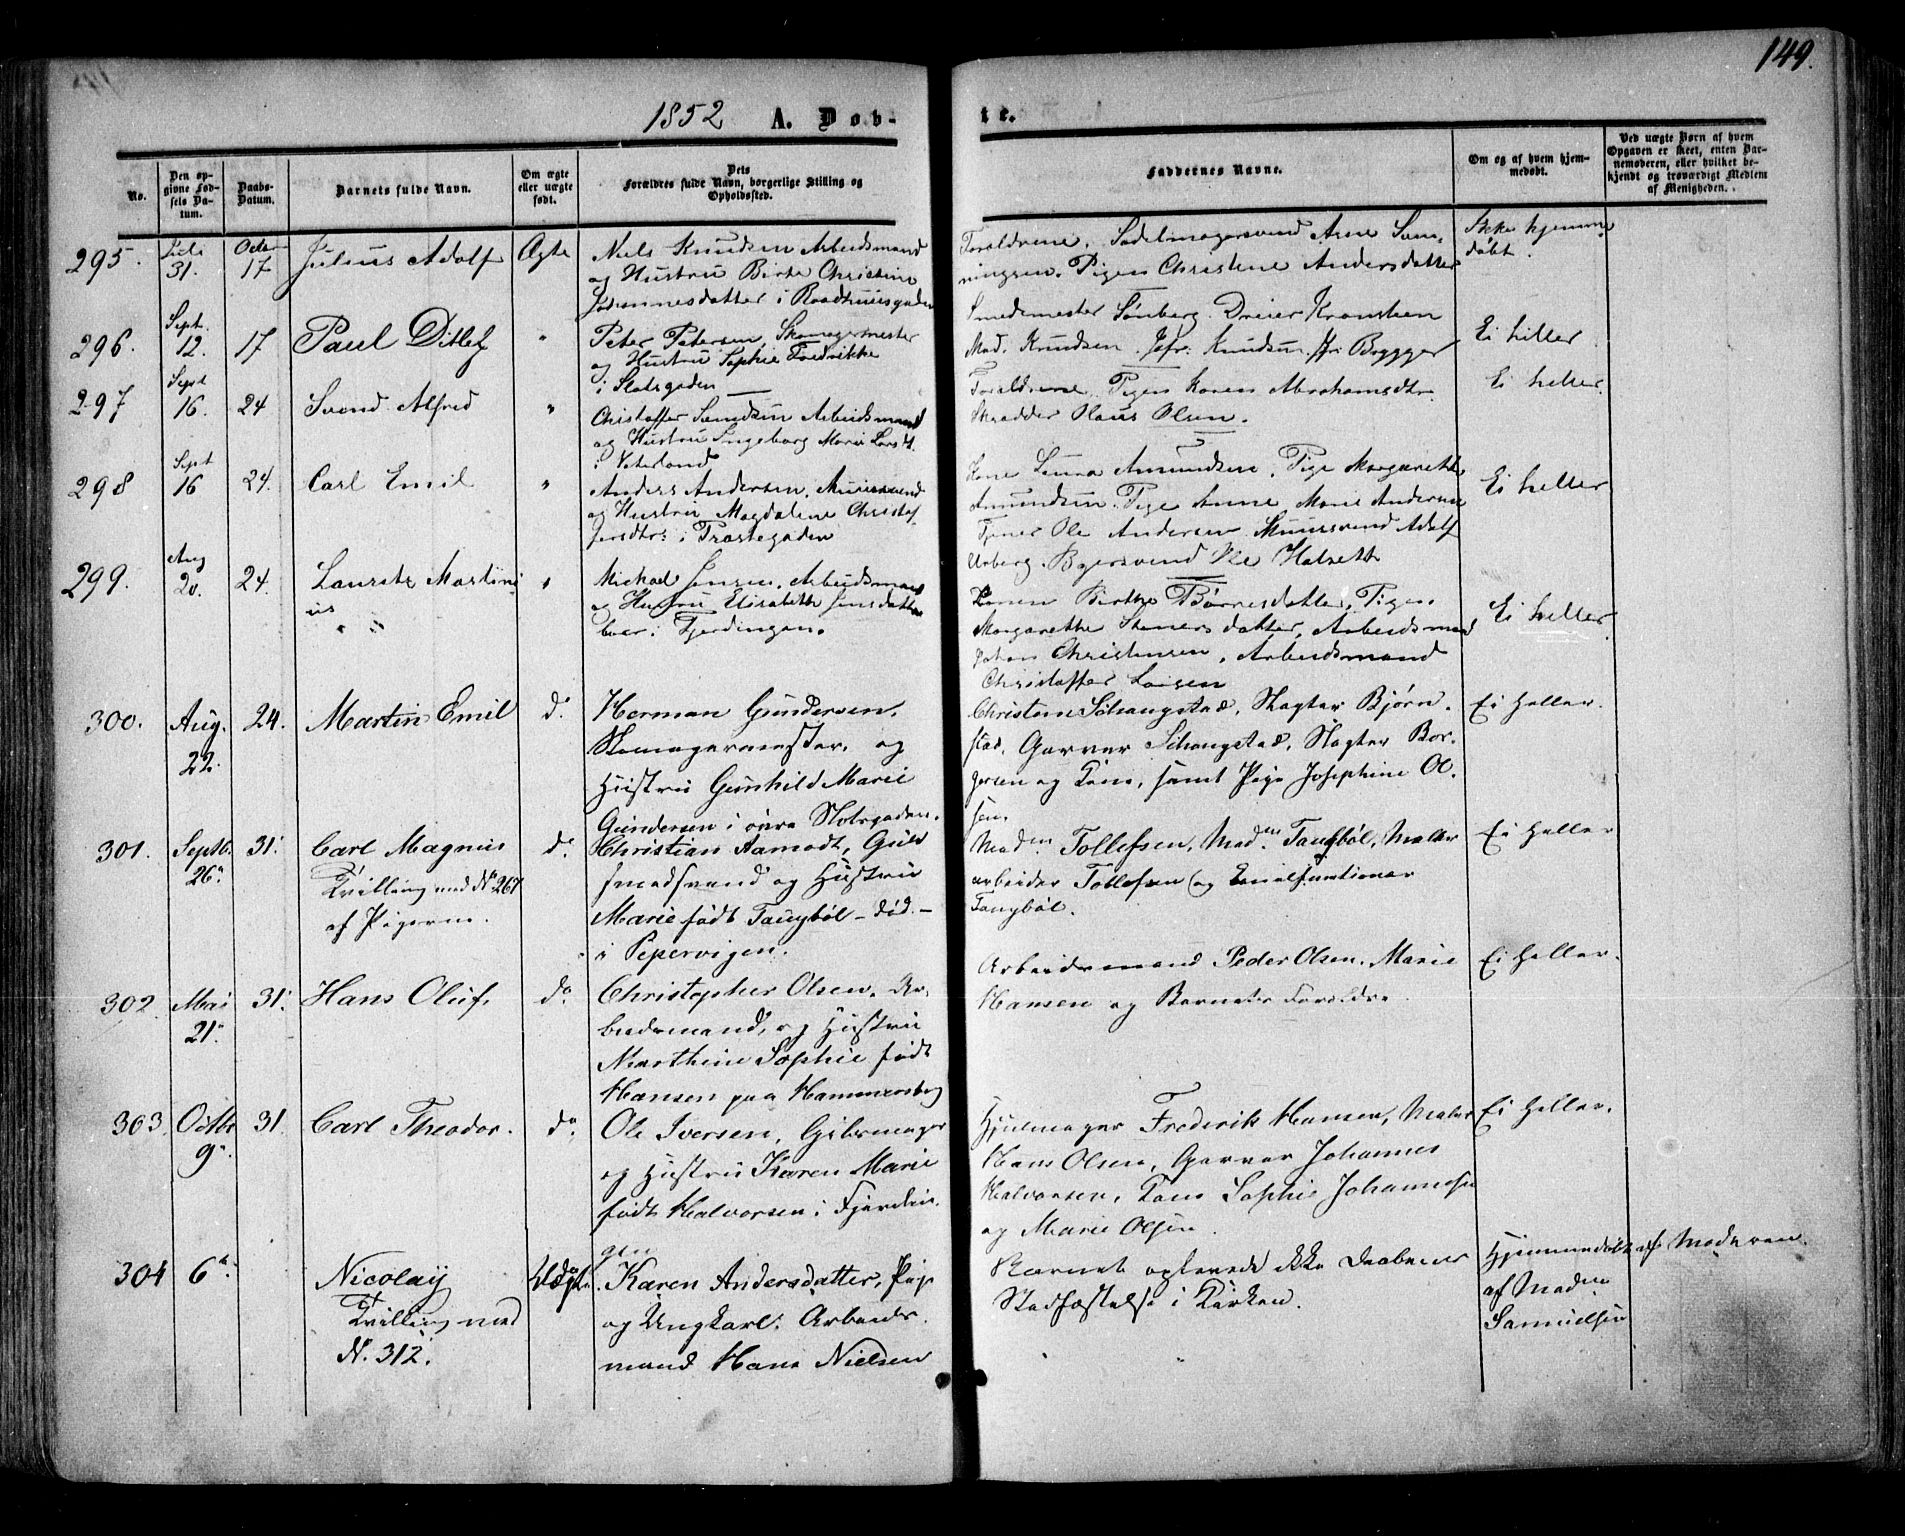 149.
1852 A. Døb-
te.
No.
Den opgivne Fødsels Datum.
Daabs-Datum.
Barnets fulde Navn.
Om ægte eller uægte født.
Dets Forældres fulde Navn, borgerlige Stilling og Opholdssted.
Faddernes Navne.
Om og af hvem hjemmedøbt.
Ved uægte Børn af hvem Opgaven er skeet, enten Barnemoderen, eller hvilket bekjendt og troværdigt Medlem af Menigheden.
295. Juli 31. Octer 17 Julius Adolf Ægte
Niels Knudsen Arbeidsmand
og Hustru Birte Christine
Johannesdatter i Raadhuusgaden
Forældrene. Sadelmagersvend Arne
Pigen Christene Andersdatter
Ikke hjemme
døbt.
296. Sept. 12. 17 Paul Ditlef "
Peter Petersen, Skomagermester
og Hustru Sophie Fredrikke
i Slotsgaden
Smedemester Sønberg. Dreier Kronsteen
Mad. Knudsen. Jofr. Knudsen Brygger
Ei heller.
297 Sept 16. 24 Svend Alfred "
Christoffer Svendsen Arbeidsmand
og Hustru Ingeborg Marie Larsd.
i Vaterland
Forældrene. Pigen Karen Abrahamsdtr.
Skrædder Olaus Olsen.
Ei heller.
298 Sept 16 24. Carl Emil "
Anders Andersen, Muursvend
og Hustru Magdalene Christof
fersdtr. i Grøstegaden
Kone Laura Amundsen, Pige Margarethe
Amundsen. Pige Anne Marie Andersen
Tjener Ole Andersen Muursvend Adolf
Ole Halseth
Ei heller
299. Aug 20. 24. Lauritz Martini
us "
Michael Jensen, Arbeidsmand
og Hustru Elisabeth Jensdatter
boer i Fjerdingen.
Konen Birthe Børresdatter, Pigen
Margarethe Stenersdatter, Arbeidsmand
Johan Christensen, Arbeidsmand
Christoffer Larsen
Ei heller
300. Aug. 22. 24. Martin Emil do
Herman Gundersen,
Skomagermester, og
Hustru Gunhild Marie
Gundersen i øvre Slotsgaden.
Christian Schangstad, Slagter Bjørn-
stad, Garver Schangstad, Slagter Bor-
gersen og Kone, samt Pige Josephine Ol-
sen.
Ei heller.
301. Septb. 26. 31. Carl Magnus do
Tvilling med No 267
af Pigerne.
Christian Aamodt, Guld
smedsvend og Hustru
Marie født Taugbøl - død -
i Pepervigen.
Maden Tollefsen, Maden Taugbøl, Maler
arbeider Tollefsen og Canalfunctionær
Taugbøl.
Ei heller
302. Mai 21. 31. Hans Oluf, do
Christopher Olsen, Ar-
beidsmand, og Hustru
Marthine Sophie født
Hansen paa Hammersborg
Arbeidsmand Peder Olsen, Marie
Hansen og Barnets Forældre.
Ei heller.
303 Octbr 9. 31. Carl Theodor. do
Ole Iversen, Gjørtmager
og Hustru Karen Marie
født Halvorsen i Fjerdin-
gen
Hjulmager Frederik Hansen, Maler
Hans Olsen, Garver Johannes
Halvorsen, Kone Sophie Johannesen
og Marie Olsen.
Ei heller.
304 6. Nicolay Uægte
Tvilling med
N. 312.
Karen Andersdatter, Pige
og Ungkarl: Arbeids-
mand Hans Nielsen
Barnet oplevede ikke Daabens
Stadfæstelse i Kirken.
Hjemmedøbt
af Maden
Samuelsen
af Moderen.